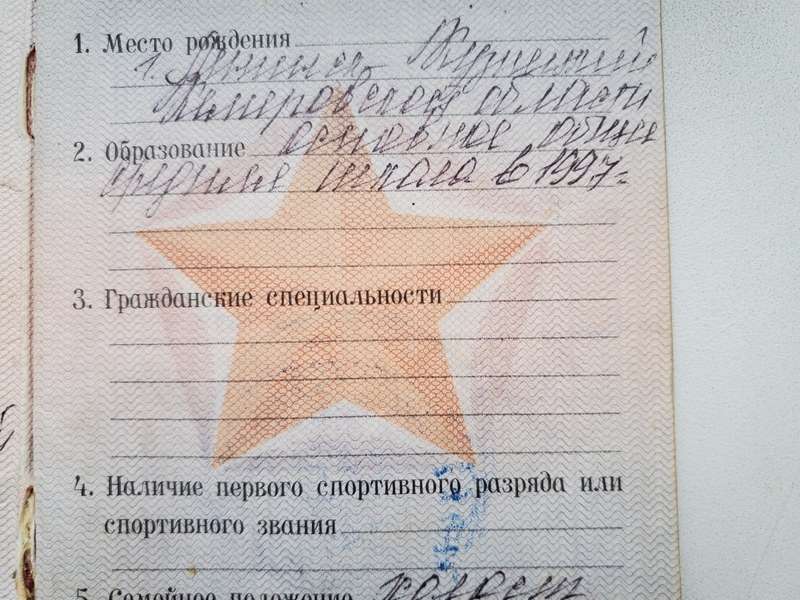 1. Место рождения
г. Ленинск-Кузнецкий
Кемеровской области
2. Образование основное общее
средняя школа в 1997г.
3. Гражданские специальности
4. Наличие первого спортивного разряда или
спортивного звания
5. Семейное положение холост